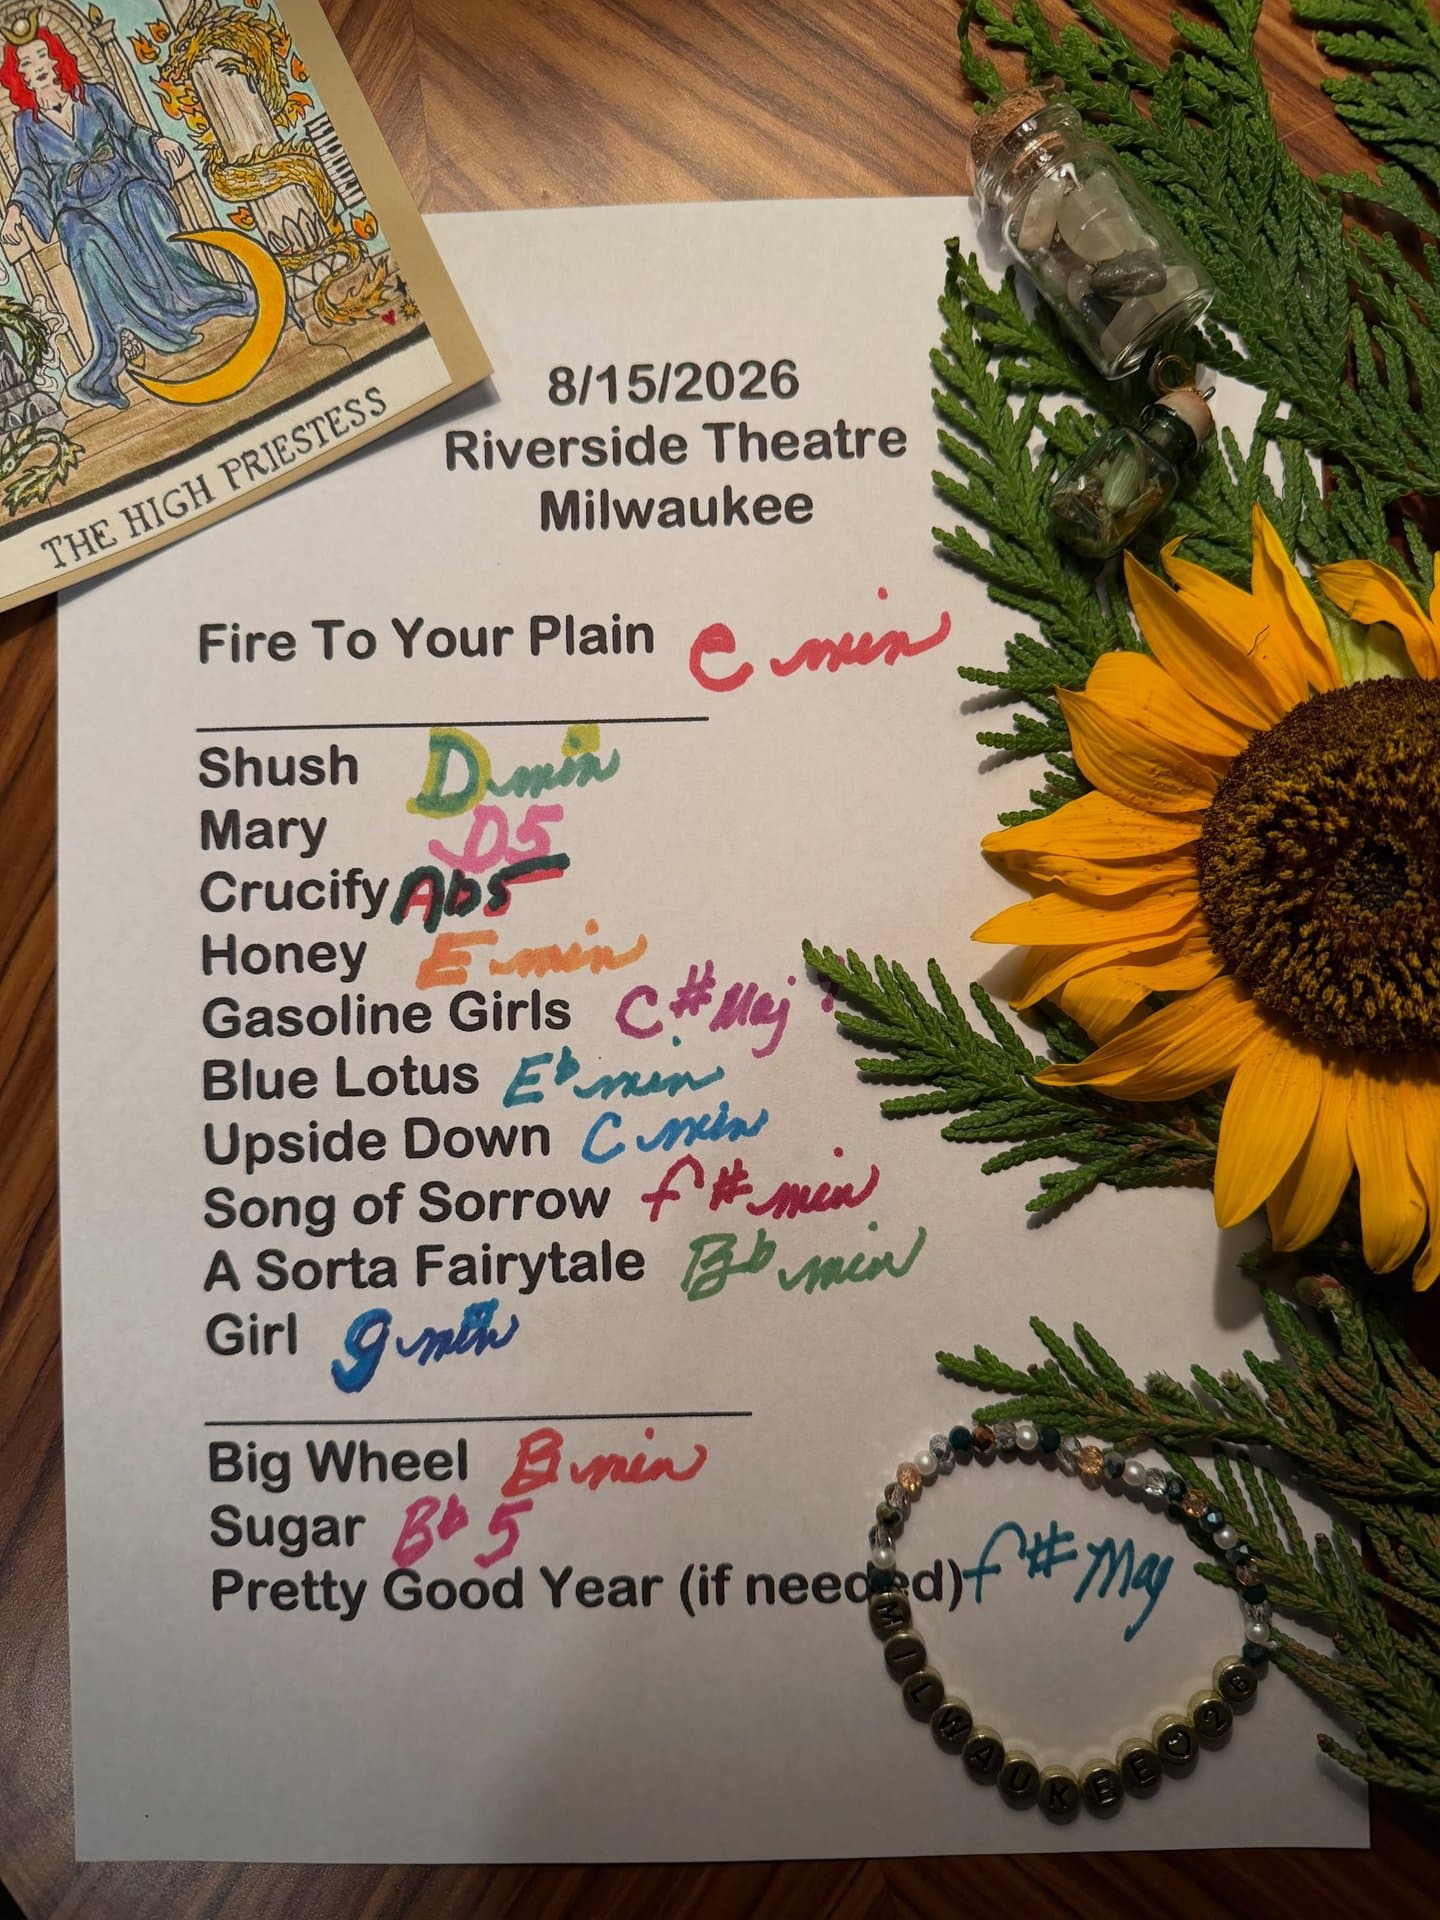 THE HIGH PRIESTESS
8/15/2026
Riverside Theatre
Milwaukee
Fire To Your Plain C min
Shush D min
Mary D5
Crucify Ab5
Honey E min
Gasoline Girls C# Maj
Blue Lotus Eb min
Upside Down C min
Song of Sorrow f# min
A Sorta Fairytale Bb min
Girl g min
Big Wheel B min
Sugar Bb 5
Pretty Good Year (if needed) f# Maj
MILWAUKEE♡26